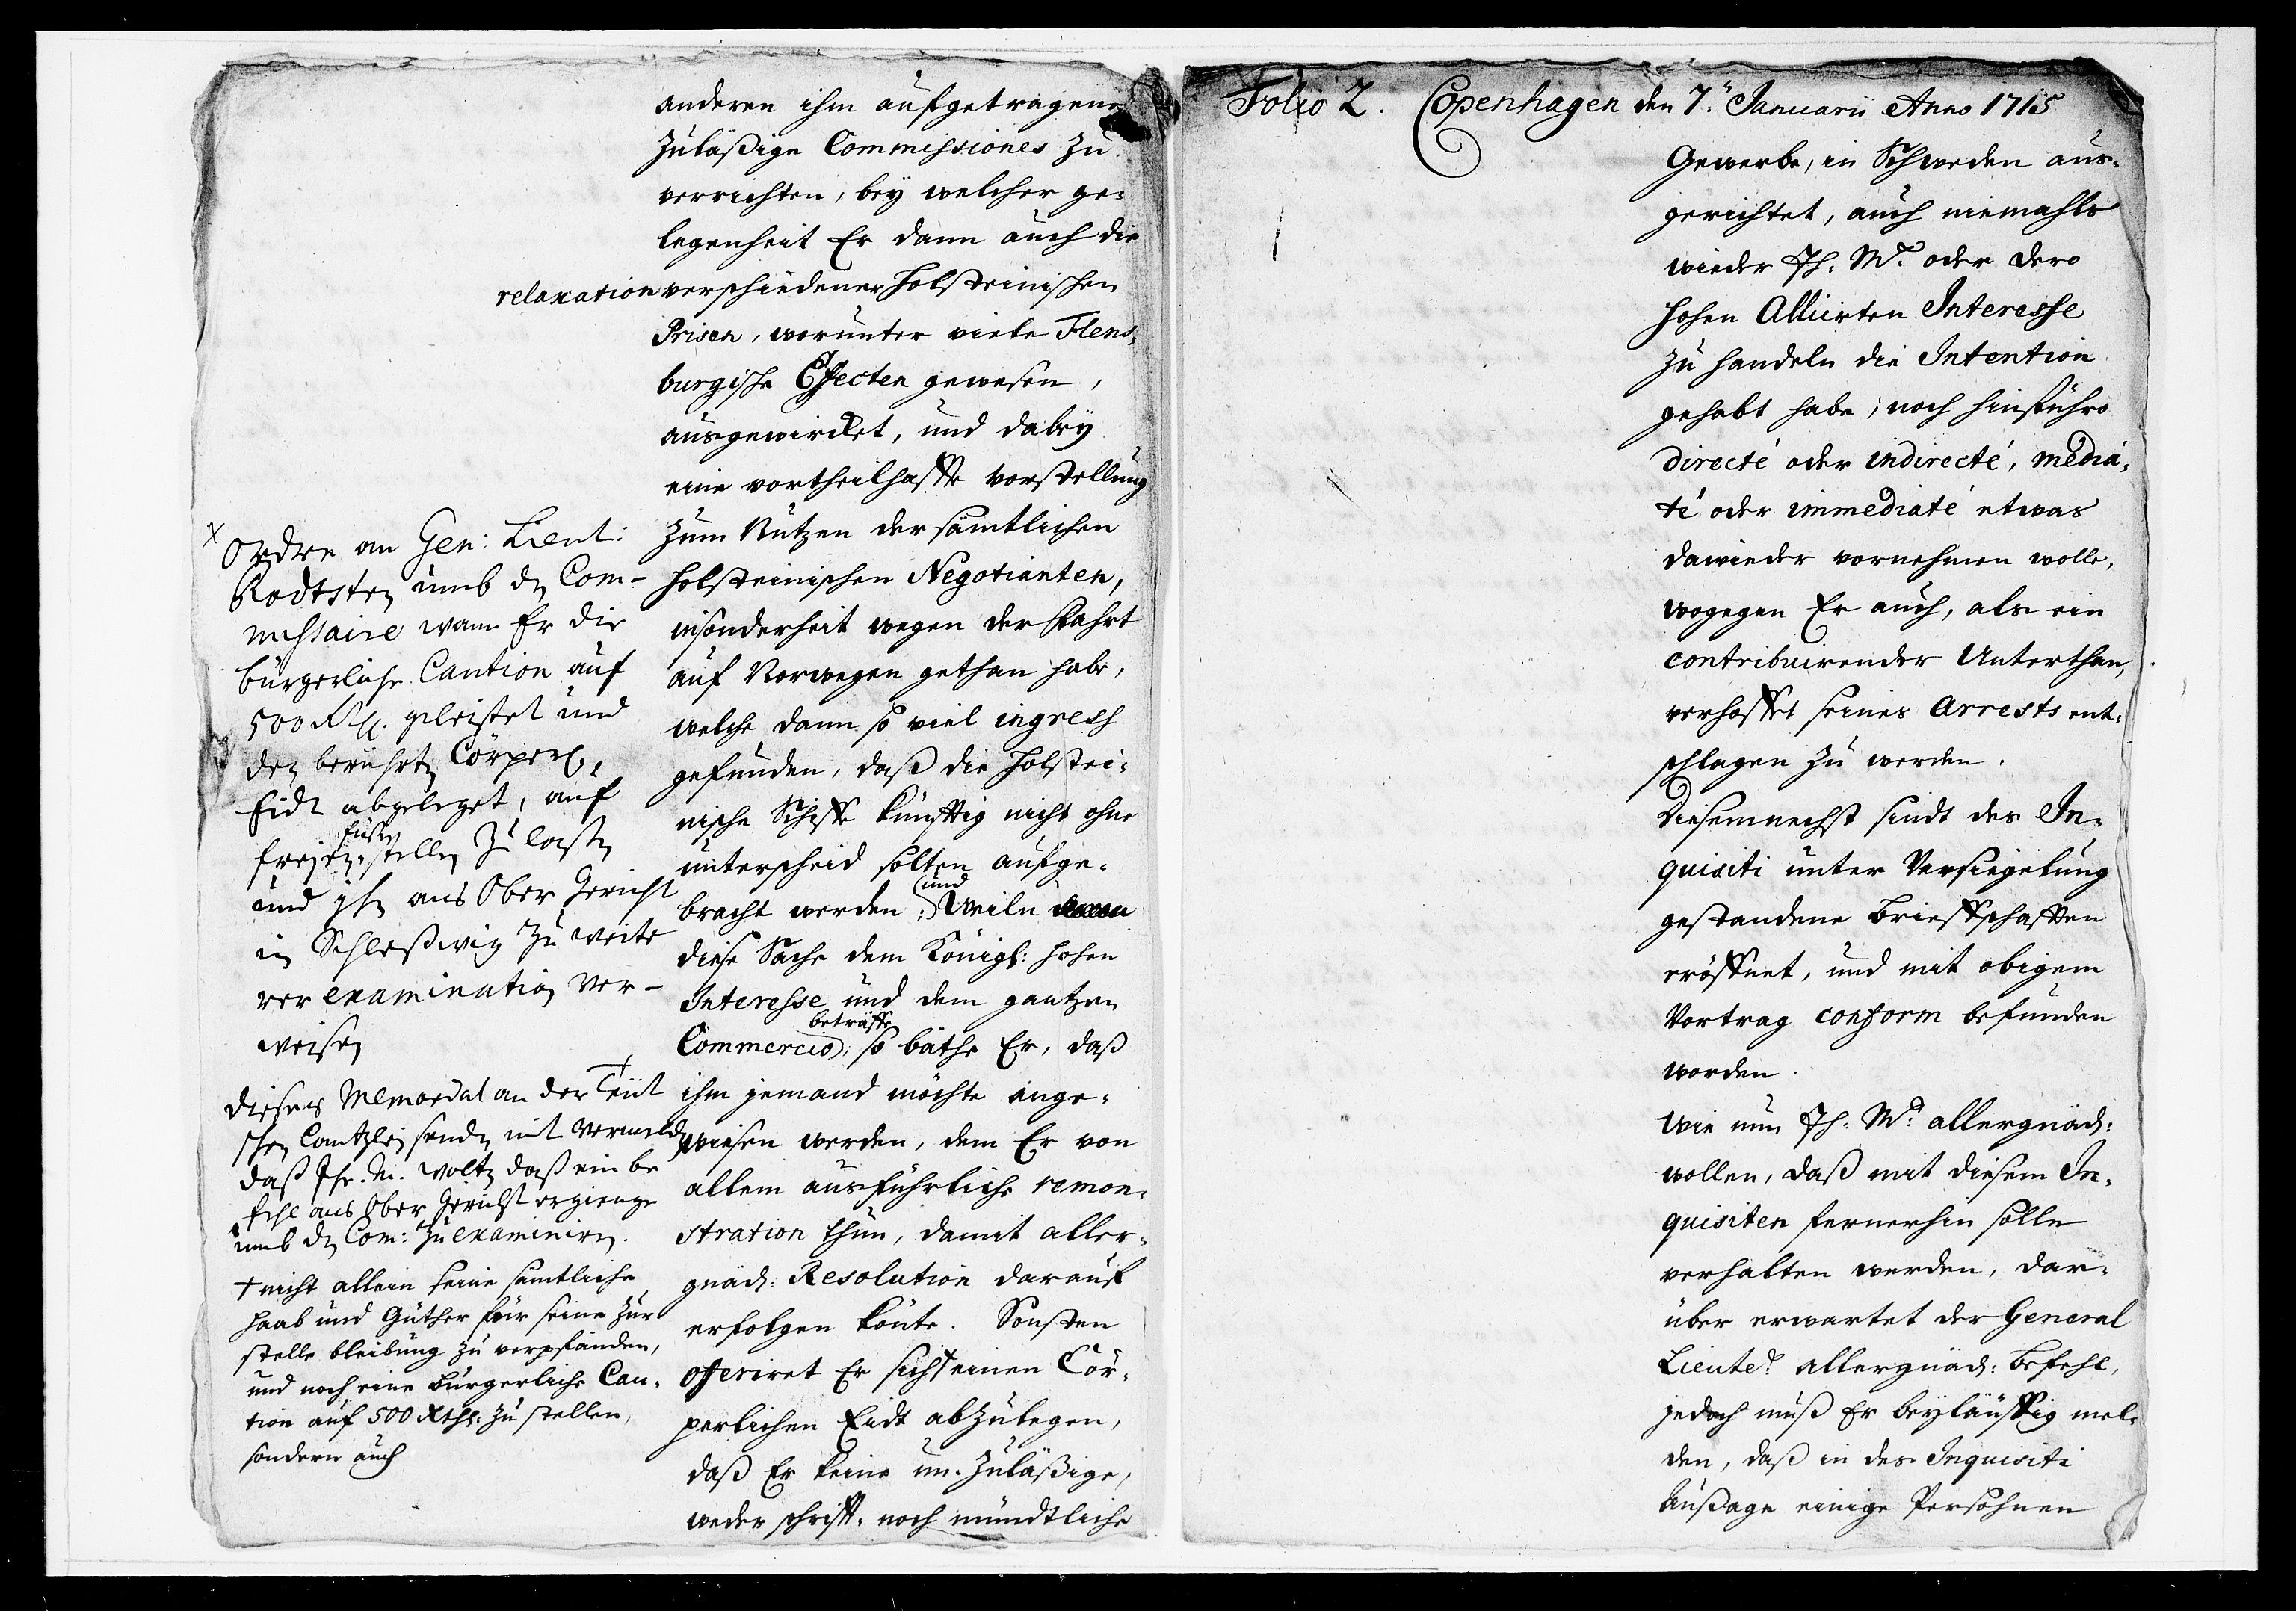 anderen ihm aufgetragene
zuläßige Commissiones zu
verrichten, bey welcher ge-
legenheit Er dann auch die
relaxation verschiedener Holsteinischen
Prisen, worunter viele Flens-
burgische Effecten gewesen,
ausgewircket, und dabey
eine vortheilhaffte vorstellung
zum Nutzen der sämtlichen
Holsteinischen Negotianten,
insonderheit wegen der Fahrt
auf Norwegen gethan habe,
welche dann so viel ingress
gefunden, daß die Holstei-
nische Schiffe künfftig nicht ohne
unterscheid solten aufge-
bracht werden; und Weiln
diese Sache dem Königl: hohen
Interesse und dem gantzen
Commercio beträffe; so bäthe Er, daß
ihm jemand möchte ange-
wiesen werden, dem Er von
allem ausführliche remon-
stration thun, damit aller-
gnäd: Resolution darauf
erfolgen könte. Sonsten
offeriret Er sich + einen Cör-
perlichen Eidt abzulegen,
daß Er keine un-zuläßige,
weder schrifft- noch mündtliche
x
Ordre an Gen: Lieut:
umb den Com-
missaire wann Er die
bürgerliche Caution auf
500 geleistet und
den berührten Cörperl.
Eidt abgeleget, auf
freyen füßen stellen zu laßen
und ihn ans Ober Gericht
in Schleßwig zu weite
rer examination ver-
weisen
dieses Memorial an der Teüt
schen Cantzley senden mit vermelden
daß Ihr. M. wolten daß ein be
fehl ans Ober Gericht ergienge
umb den Com: zu examiniren.
+ nicht allein seine samtliche
Haab und Güther für seine zur
stelle bleibung zu verpfänden,
und noch eine bürgerliche Cau-
tion auf 500 Rthl. zu stellen,
sondern auch
Folio 2. Copenhagen den 7. Januarii Anno 1715
Gewerbe, in Schweden aus-
gerichtet, auch niemahls
wieder Ih. Mt. oder dero
hohen Alliirten Interesse
zu handeln die Intention
gehabt habe, noch hinführo
directé oder indirecté, media-
té oder immediaté etwas
dawieder vornehmen wolle,
wogegen Er auch, als ein
contribuirender Unterthan,
verhoffet seines Arrests ent-
schlagen zu werden.
Diesemnechst sindt des In-
quisiti unter Versiegelung
gestandene Briefschafften
eröffnet, und mit obigem
Vortrag conform befunden
worden.
Wie nun Ih. Mt. allergnäd:
wollen, daß mit diesem In-
quisiten fernerhin solle
verhalten werden, dar-
über erwartet der General
Lieutet. allergnäd: Befehl,
jedoch muß Er beyläuffig mel-
den, daß in des Inquisiti
Außage einige Persohnen